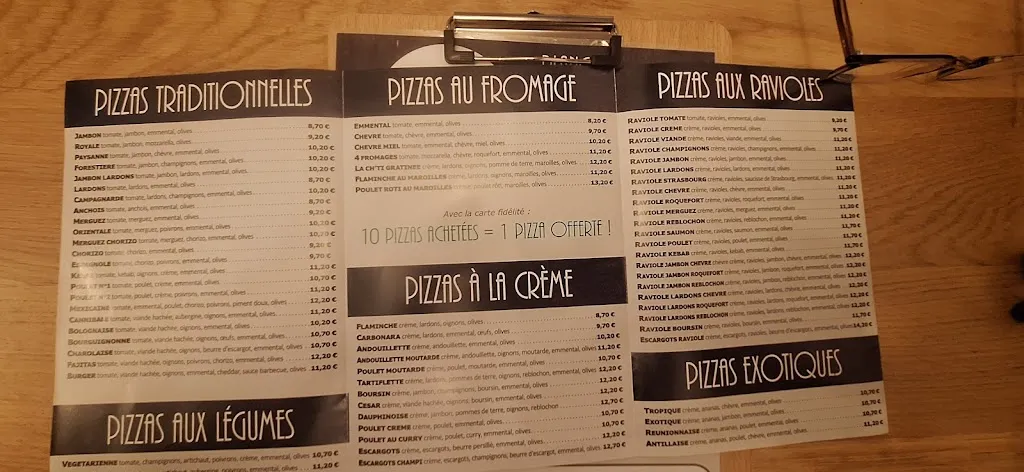 PIZZAS TRADITIONNELLES
JAMBON tomate, jambon, emmental, olives 8,70 €
ROYALE tomate, jambon, mozzarella, olives 9,20 €
PAYSANNE tomate, jambon, chèvre, emmental, olives 10,20 €
FORESTIERE tomate, jambon, champignons, emmental, olives 10,20 €
JAMBON LARDONS tomate, jambon, lardons, emmental, olives 10,20 €
LARDONS tomate, lardons, emmental, olives 8,70 €
CAMPAGNARDE tomate, lardons, champignons, emmental, olives 10,20 €
ANCHOIS tomate, anchois, emmental, olives 8,70 €
MERGUEZ tomate, merguez, emmental, olives 9,20 €
ORIENTALE tomate, merguez, poivrons, emmental, olives 10,20 €
MERGUEZ CHORIZO tomate, merguez, chorizo, emmental, olives 10,20 €
CHORIZO tomate, chorizo, emmental, olives 9,20 €
ESPAGNOLE tomate, chorizo, poivrons, emmental, olives 9,70 €
KEBAB tomate, kebab, oignons, crème, emmental, olives 11,20 €
POULET N°1 tomate, poulet, crème, emmental, olives 10,70 €
POULET N°2 tomate, poulet, crème, poivrons, emmental, olives 11,20 €
MEXICAINE tomate, emmental, poulet, chorizo, poivrons, piment doux, olives 12,20 €
CANNIBALE tomate, viande hachée, aubergine, oignons, emmental, olives 11,20 €
BOLOGNAISE tomate, viande hachée, oignons, emmental, olives 10,20 €
BOURGUIGNONNE tomate, viande hachée, oignons, emmental, œufs, olives 10,70 €
CHAROLAISE tomate, viande hachée, oignons, beurre d'escargot, emmental, olives 10,70 €
FAJITAS tomate, viande hachée, oignons, poivrons, chorizo, emmental, olives 12,20 €
BURGER tomate, viande hachée, oignons, emmental, cheddar, sauce barbecue, olives 11,20 €
PIZZAS AUX LÉGUMES
VEGETARIENNE tomate, champignons, artichaut, poivrons, crème, emmental, olives 10,70 €
11,20 €
PIZZAS AU FROMAGE
EMMENTAL tomate, emmental, olives 8,20 €
CHEVRE tomate, chèvre, emmental, olives 9,70 €
CHEVRE MIEL tomate, emmental, chèvre, miel, olives 10,20 €
4 FROMAGES tomate, mozzarella, chèvre, roquefort, emmental, olives 11,20 €
LA CH'TI GRATINEE crème, lardons, oignons, pomme de terre, maroilles, olives 12,20 €
FLAMICHE AU MAROILLES crème, lardons, oignons, maroilles, olives 11,20 €
POULET ROTI AU MAROILLES crème, poulet rôti, maroilles, olives 13,20 €
Avec la carte fidélité :
10 PIZZAS ACHETÉES = 1 PIZZA OFFERTE !
PIZZAS À LA CRÈME
FLAMINCHE crème, lardons, oignons, olives 8,70 €
CARBONARA crème, lardons, emmental, œufs, olives 9,70 €
ANDOUILLETTE crème, andouillette, emmental, olives 10,70 €
ANDOUILLETTE MOUTARDE crème, andouillette, oignons, moutarde, emmental, olives 11,20 €
POULET MOUTARDE crème, poulet, moutarde, emmental, olives 10,70 €
TARTIFLETTE crème, lardons, pommes de terre, oignons, reblochon, emmental, olives 12,20 €
BOURSIN crème, jambon, champignons, boursin, emmental, olives 12,20 €
CESAR crème, viande hachée, oignons, boursin, emmental, olives 12,20 €
DAUPHINOISE crème, jambon, pommes de terre, oignons, reblochon 12,70 €
POULET CREME crème, poulet, emmental, olives 10,70 €
POULET AU CURRY crème, poulet, curry, emmental, olives 10,70 €
ESCARGOTS crème, escargots, beurre persillé, emmental, olives 12,20 €
ESCARGOTS CHAMPI crème, escargots, champignons, beurre d'escargot, emmental, olives 12,70 €
PIZZAS AUX RAVIOLES
RAVIOLE TOMATE tomate, ravioles, emmental, olives 9,20 €
RAVIOLE CREME crème, ravioles, emmental, olives 9,70 €
RAVIOLE VIANDE crème, ravioles, viande hachée, oignons, emmental, olives 11,20 €
RAVIOLE CHAMPIGNONS crème, ravioles, champignons, emmental, olives 11,20 €
RAVIOLE JAMBON crème, ravioles, jambon, emmental, olives 11,20 €
RAVIOLE LARDONS crème, ravioles, lardons, emmental, olives 11,20 €
RAVIOLE STRASBOURG crème, ravioles, saucisse de Strasbourg, emmental, olives 11,20 €
RAVIOLE CHEVRE crème, ravioles, chèvre, emmental, olives 11,20 €
RAVIOLE ROQUEFORT crème, ravioles, roquefort, emmental, olives 11,20 €
RAVIOLE MERGUEZ crème, ravioles, merguez, emmental, olives 11,20 €
RAVIOLE REBLOCHON crème, ravioles, reblochon, emmental, olives 11,20 €
RAVIOLE SAUMON crème, ravioles, saumon, emmental, olives 11,70 €
RAVIOLE POULET crème, ravioles, poulet, emmental, olives 11,70 €
RAVIOLE KEBAB crème, ravioles, kebab, emmental, olives 11,70 €
RAVIOLE JAMBON CHEVRE crème, ravioles, jambon, chèvre, emmental, olives 12,20 €
RAVIOLE JAMBON ROQUEFORT crème, ravioles, jambon, roquefort, emmental, olives 12,20 €
RAVIOLE JAMBON REBLOCHON crème, ravioles, jambon, reblochon, emmental, olives 12,20 €
RAVIOLE LARDONS CHEVRE crème, ravioles, lardons, chèvre, emmental, olives 12,20 €
RAVIOLE LARDONS ROQUEFORT crème, ravioles, lardons, roquefort, emmental, olives 12,20 €
RAVIOLE LARDONS REBLOCHON crème, ravioles, lardons, reblochon, emmental, olives 12,20 €
RAVIOLE BOURSIN crème, ravioles, boursin, emmental, olives 11,70 €
ESCARGOTS RAVIOLE crème, ravioles, escargots, beurre d'escargots, emmental, olives 14,20 €
PIZZAS EXOTIQUES
TROPIQUE crème, ananas, chèvre, emmental, olives 10,70 €
EXOTIQUE crème, ananas, jambon, emmental, olives 10,70 €
REUNIONNAISE crème, ananas, poulet, emmental, olives 10,70 €
ANTILLAISE crème, ananas, poulet, chèvre, emmental, olives 11,20 €